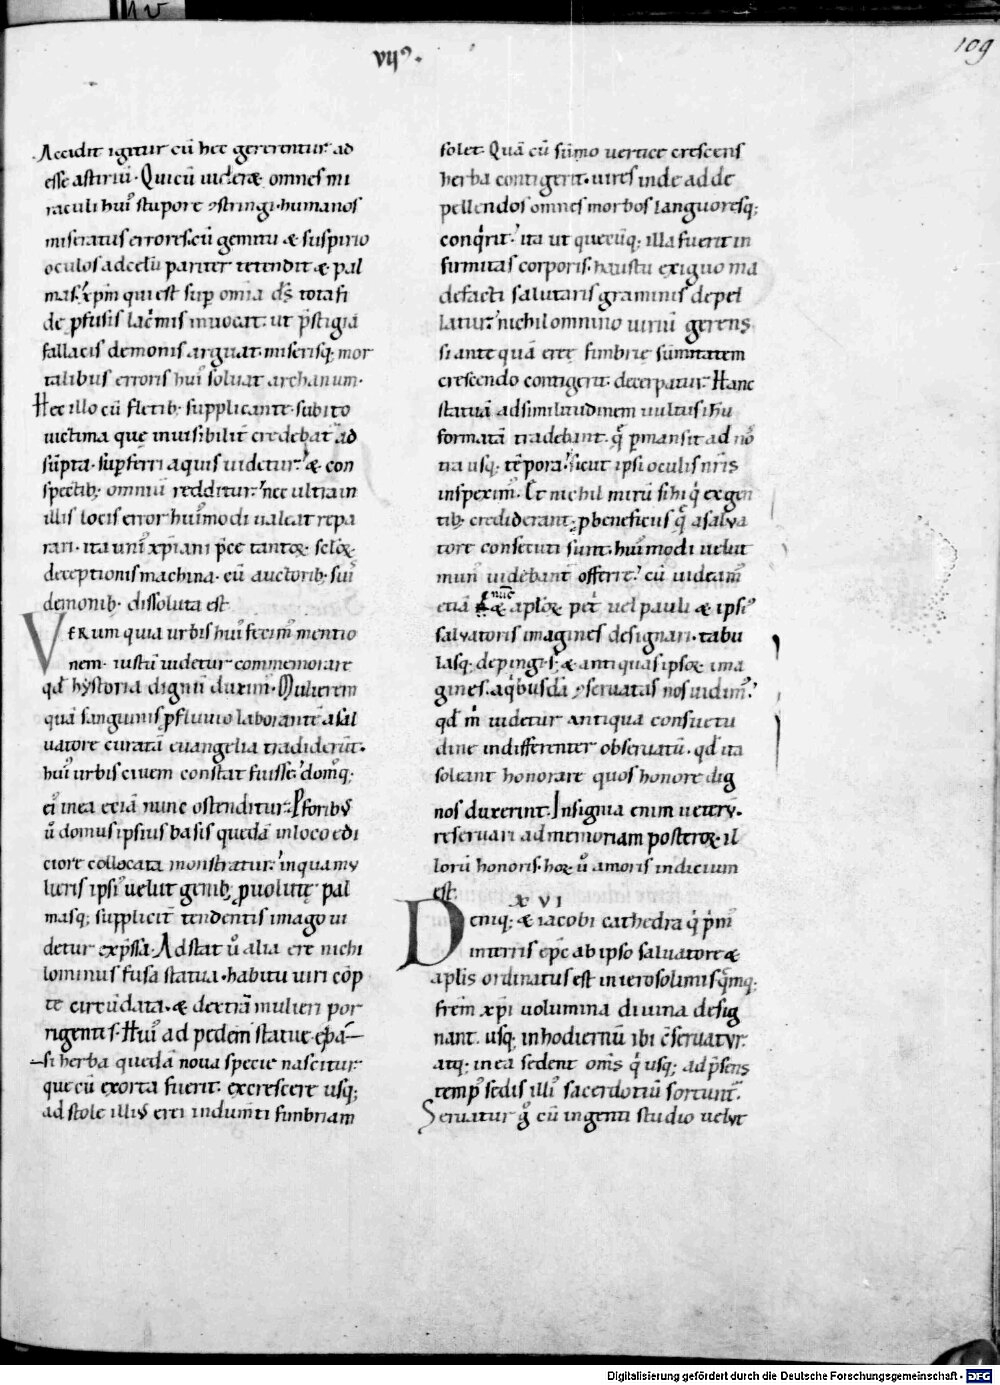 vii⁹.
109
Accidit igitur cū hec gererentur ad
esse astiriū. Qui cū uideræ omnes mi
raculi hui⁹ stupore ꝯstringi. humanos
miseratus errores. cū gemitu & suspirio
oculos ad celū pariter tetendit & pal
mas. xp̄m qui est suꝑ om̄ia d̄s tota fi
de ꝓfusis lac̓mis inuocat. ut p̄stigia
fallacis demonis arguat. miserisq; mor
talibus erroris hui⁹ soluat archanum.
Hec illo cū fletib; supplicante. subito
uictima que inuisibilit̄ credebat̄ ad
sūpta. suꝑferri aquis uidetur. & con
spectib; omniū redditur. nec ultra in
illis locis error hui⁹modi ualeat repa
rari. ita uni⁹ xp̄iani p̄ce tantoꝝ scl̄oꝝ
deceptionis machina. cū auctorib; sui⁹
demonib; dissoluta est
VERUM quia urbis hui⁹ fecim⁹ mentio
nem. iustū uidetur commemorare
qd̄ hystoria dignū duxim⁹. Mulierem
quā sanguinis ꝓfluuio laborantē a sal
uatore curatā euangelia tradiderūt.
hui⁹ urbis ciuem constat fuisse. dom⁹q;
ei⁹ in ea etiā nunc ostenditur. P foribus
ū domus ipsius basis quedā in loco edi
ciore collocata monstratur. in qua mu
lieris ipsi⁹ uelut genib; ꝓuolutę pal
masq; supplicit̄ tendentis imago ui
detur exp̄ssa. Adstat ū alia ere nichi
lominus fusa statua. habitu uiri cōp
te circūdata. & dextrā mulieri por
rigentis. Hui⁹ ad pedem statue. e basi
si herba quedā noua specie nascitur
que cū exorta fuerit. excrescere usq;
ad stole illius erei indum̄ti fimbriam
solet. Quā cū sūmo uertice crescens
herba contigerit. uires inde ad de
pellendos omnes morbos languoresq;
conq̓rit. ita ut quecūq; illa fuerit in
firmitas corporis. haustu exiguo ma
defacti salutaris graminis depel
latur. nichil omnino uiriū gerens
si ante quā eree fimbrię sūmitatem
crescendo contigerit. decerpatur. Hanc
statuā ad similitudinem uultus ih̄u
formatā tradebant. q̄ ꝑmansit ad n̄o
tra usq; tēpora. sicut ipsi oculis nr̄is
inspexim⁹. Et nichil mirū si hi q̓ ex gen
tib; crediderant. ꝓ beneficiis q̄ a salua
tore consecuti sunt. hui⁹modi uelut
mun⁹ uidebant̄ offerre. cū uideam⁹
etiā nūc & aplōꝝ pet̓ uel pauli & ipsi⁹
saluatoris imagines designari. tabu
lasq; depingi. s; & antiquas ipsoꝝ ima
gines. aq̓busdā ꝯseruatas nos uidim⁹.
qd̄ m̓ uidetur antiqua consuetu
dine indifferenter obseruatū. qd̄ ita
soleant honorare quos honore dig
nos duxerint. Insignia enim ueterū.
reseruari ad memoriam posteroꝝ. il
lorū honoris. hoꝝ ū amoris indicium
est.
XVI
Deniq; & iacobi cathedra q̓ p̓m⁹
in ierosolimis
aplīs ordinatus est in ierosolimis q̄mq;
frēm xp̄i uolumina diuina desig
nant. usq; in hodiernū ibi cseruatur.
atq; in ea sedent om̄s q̓ usq; ad p̄sens
temp⁹ sedis illi⁹ sacerdotiū sortunt̄.
Seruatur g̊ cū ingenti studio uelut
Digitalisierung gefördert durch die Deutsche Forschungsgemeinschaft - DFG